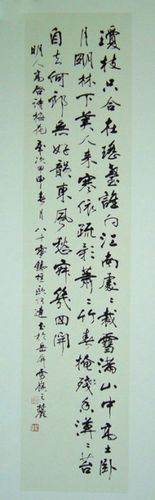 瓊枝只合在瑤臺誰向江南處〻栽雪滿山中高士臥
月明林下美人來寒依疏影蕭〻竹春掩殘香漠〻苔
自去何郎無好韻東風愁寂幾回開
明人高啟詩梅花 歲次甲申春月八十